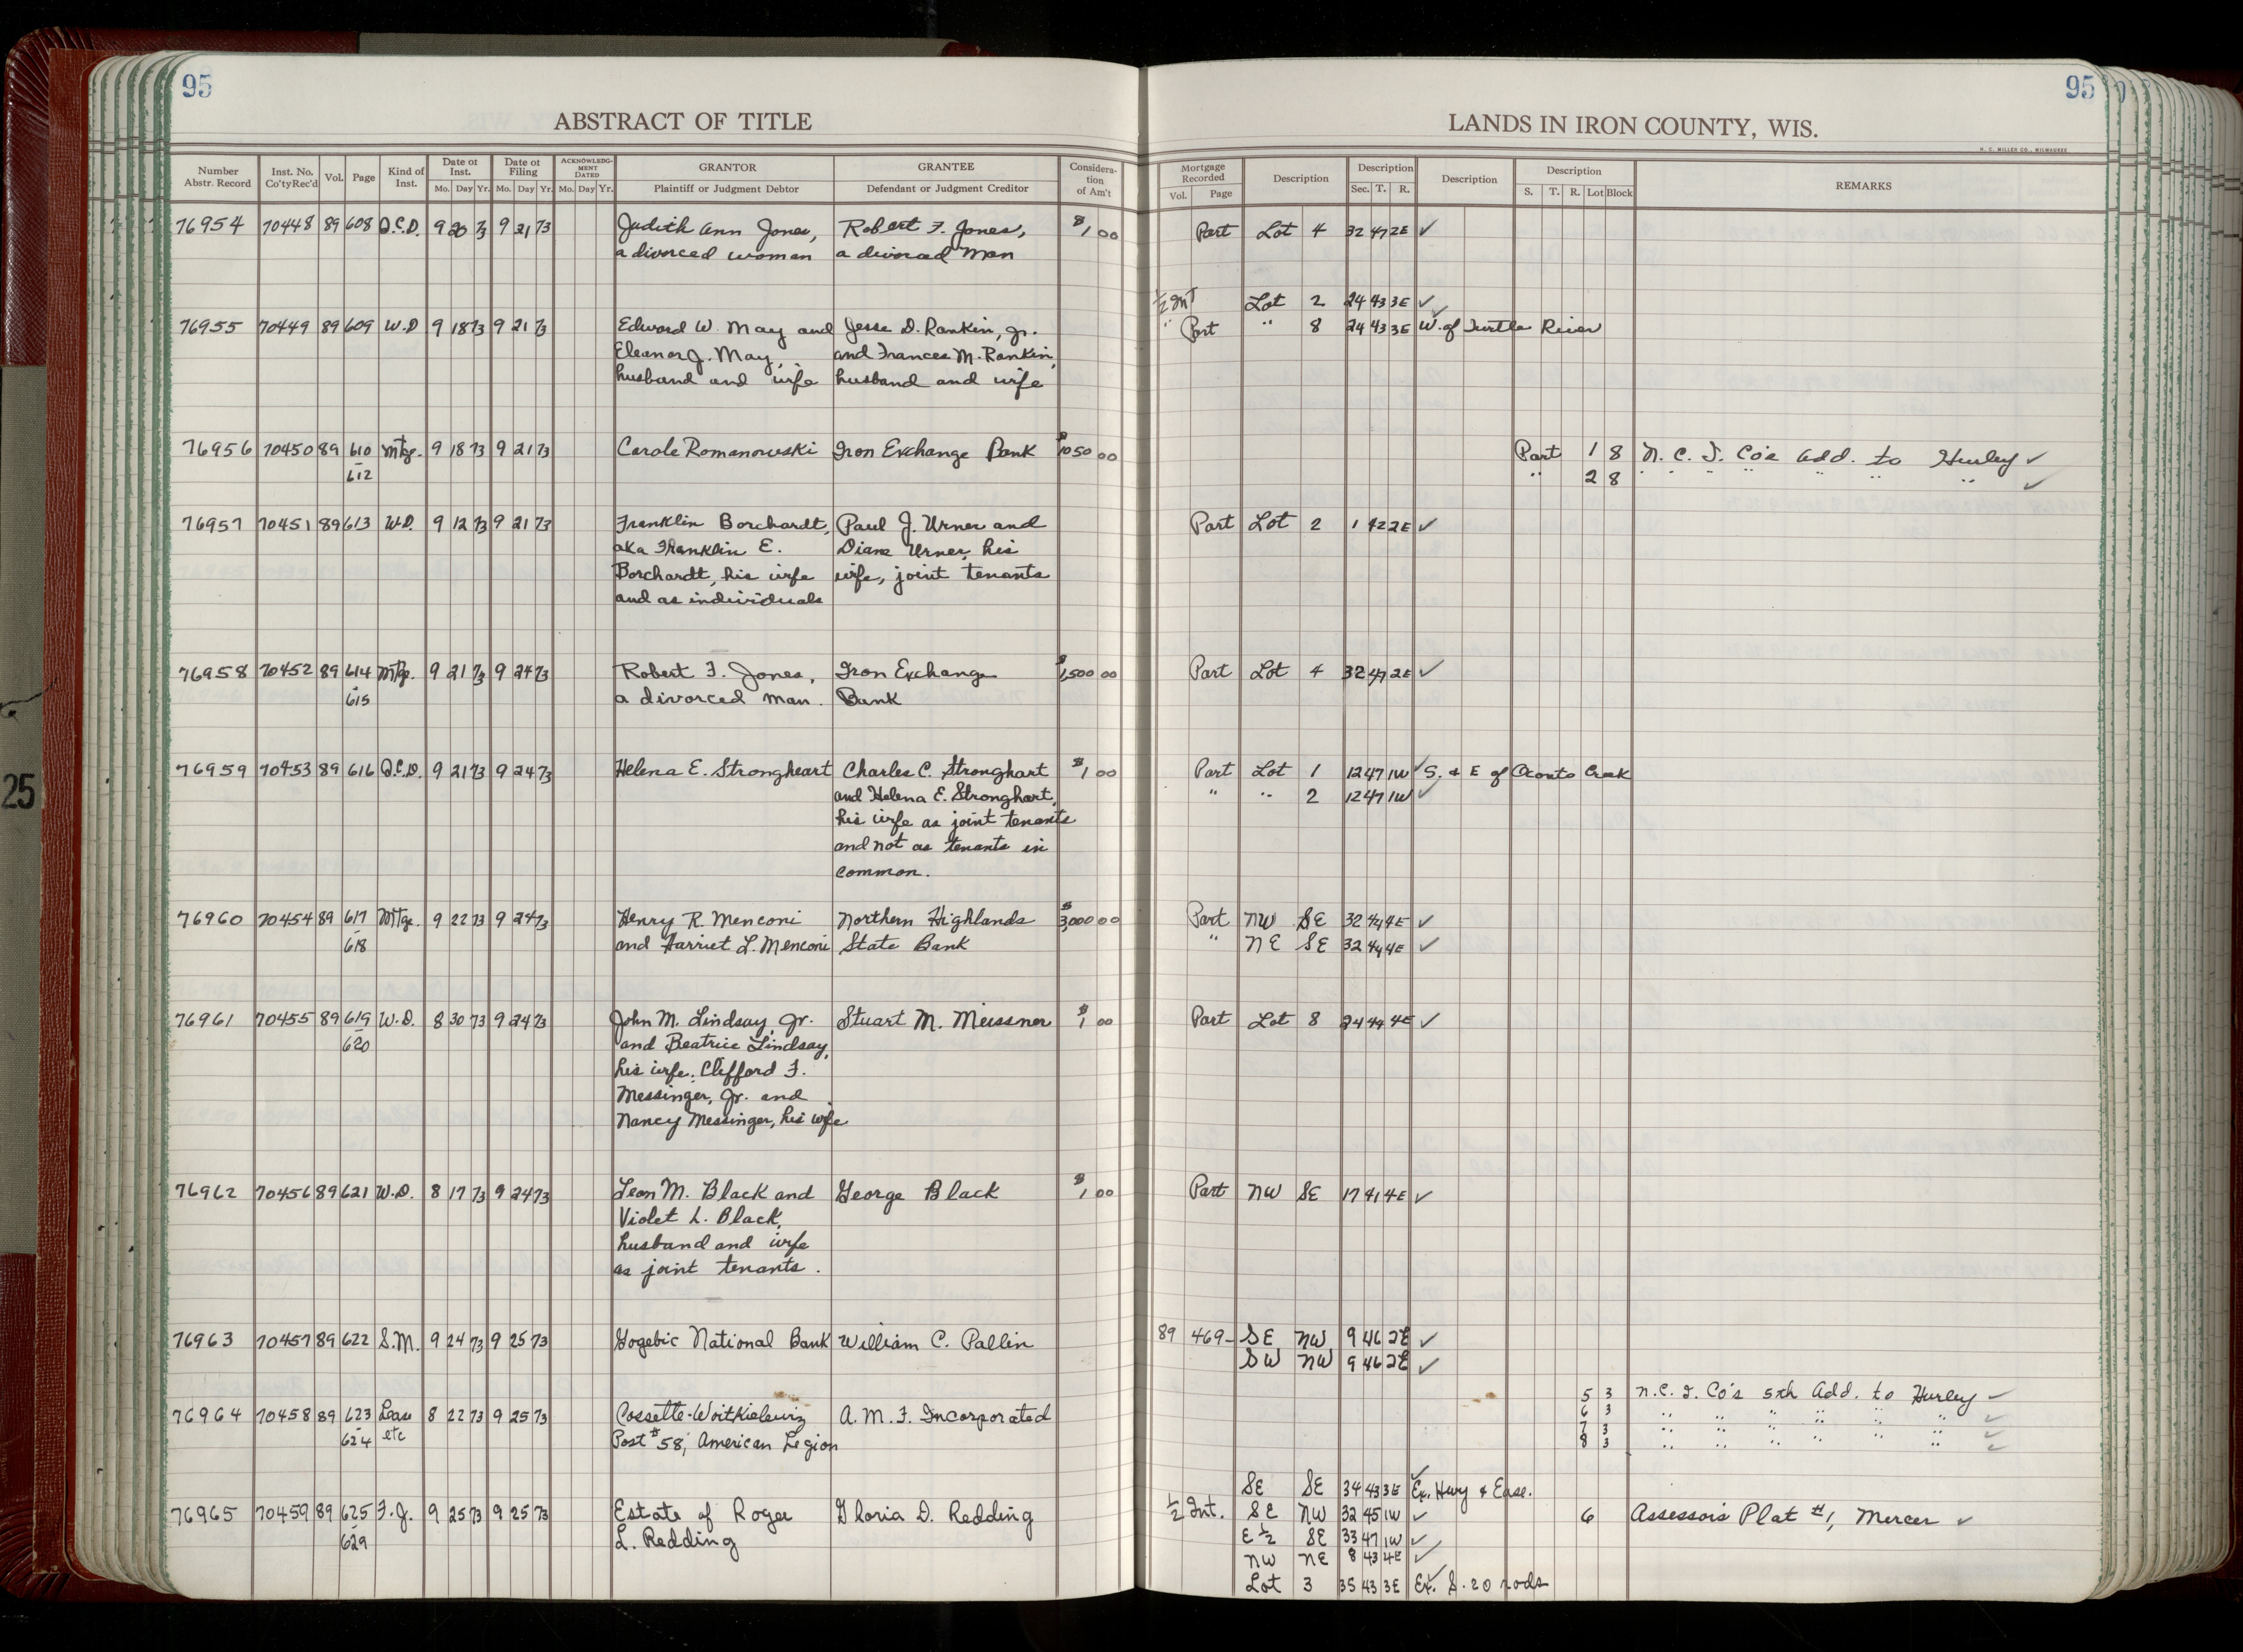 95
95
ABSTRACT OF TITLE
LANDS IN IRON COUNTY, WIS.
H. C. MILLER CO., MILWAUKEE
Number Abstr. Record Inst. No. Co'ty Rec'd Vol. Page Kind of Inst. Date of Inst. Mo. Day Yr. Date of Filing Mo. Day Yr. ACKNOWLEDGMENT DATED Mo. Day Yr. GRANTOR Plaintiff or Judgment Debtor GRANTEE Defendant or Judgment Creditor Consideration of Am't
Mortgage Recorded Vol. Page Description Description Sec. T. R. Description Description S. T. R. Lot Block REMARKS
76954 70448 89 608 Q.C.D. 9 20 73 9 21 73 Judith Ann Jones, Robert F. Jones, $1 00 Part Lot 4 32 47 2E ✓
a divorced woman a divorced man
½ Int Lot 2 24 43 3E ✓
76955 70449 89 609 W.D 9 18 73 9 21 73 Edward W. May and Jesse D. Rankin, Jr. " Part " 8 24 43 3E ✓ W. of Turtle River
Eleanor J. May, and Frances M. Rankin,
husband and wife husband and wife
76956 70450 89 610 Mtge. 9 18 73 9 21 73 Carole Romanowski Iron Exchange Bank $1050 00 Part 1 8 N. C. I. Co's Add. to Hurley ✓
- 612 " 2 8 " " " " " " " ✓
76957 70451 89 613 W.D. 9 12 73 9 21 73 Franklin Borchardt, Paul J. Urner and Part Lot 2 1 42 2E ✓
aka Franklin E. Diane Urner, his
Borchardt, his wife wife, joint tenants
and as individuals
76958 70452 89 614 Mtge. 9 21 73 9 24 73 Robert F. Jones, Iron Exchange $1,500 00 Part Lot 4 32 47 2E ✓
- 615 a divorced man. Bank
76959 70453 89 616 Q.C.D. 9 21 73 9 24 73 Helena E. Strongheart Charles C. Stronghart $1 00 Part Lot 1 12 47 1W ✓ S. & E of Oconto Creek
and Helena E. Stronghart, " " 2 12 47 1W ✓
his wife as joint tenants
and not as tenants in
common.
76960 70454 89 617 Mtge. 9 22 73 9 24 73 Henry R. Menconi Northern Highlands $3,000 00 Part NW SE 32 44 4E ✓
- 618 and Harriet L. Menconi State Bank " NE SE 32 44 4E ✓
76961 70455 89 619 W.D. 8 30 73 9 24 73 John M. Lindsay, Jr. Stuart M. Meissner $1 00 Part Lot 8 24 44 4E ✓
- 620 and Beatrice Lindsay,
his wife, Clifford F.
Messinger, Jr. and
Nancy Messinger, his wife
76962 70456 89 621 W.D. 8 17 73 9 24 73 Leon M. Black and George Black $1 00 Part NW SE 17 41 4E ✓
Violet L. Black,
husband and wife
as joint tenants.
76963 70457 89 622 S.M. 9 24 73 9 25 73 Gogebic National Bank William C. Pallin 89 469- SE NW 9 46 2E ✓
SW NW 9 46 2E ✓
5 3 N.C.I. Co's 5th Add. to Hurley ✓
76964 70458 89 623 Lease 8 22 73 9 25 73 Cossette-Woitkielewiz A. M. F. Incorporated 6 3 " " " " " " ✓
- 624 etc Post #58, American Legion 7 3 " " " " " " ✓
8 3 " " " " " " ✓
SE SE 34 43 3E ✓ Ex. Hwy & Ease.
76965 70459 89 625 F.J. 9 25 73 9 25 73 Estate of Roger Gloria D. Redding ½ Int. SE NW 32 45 1W ✓ 6 Assessor's Plat #1, Mercer ✓
- 629 L. Redding E ½ SE 33 47 1W ✓
NW NE 8 43 4E ✓
Lot 3 35 43 3E ✓ Ex. S. 20 rods
25